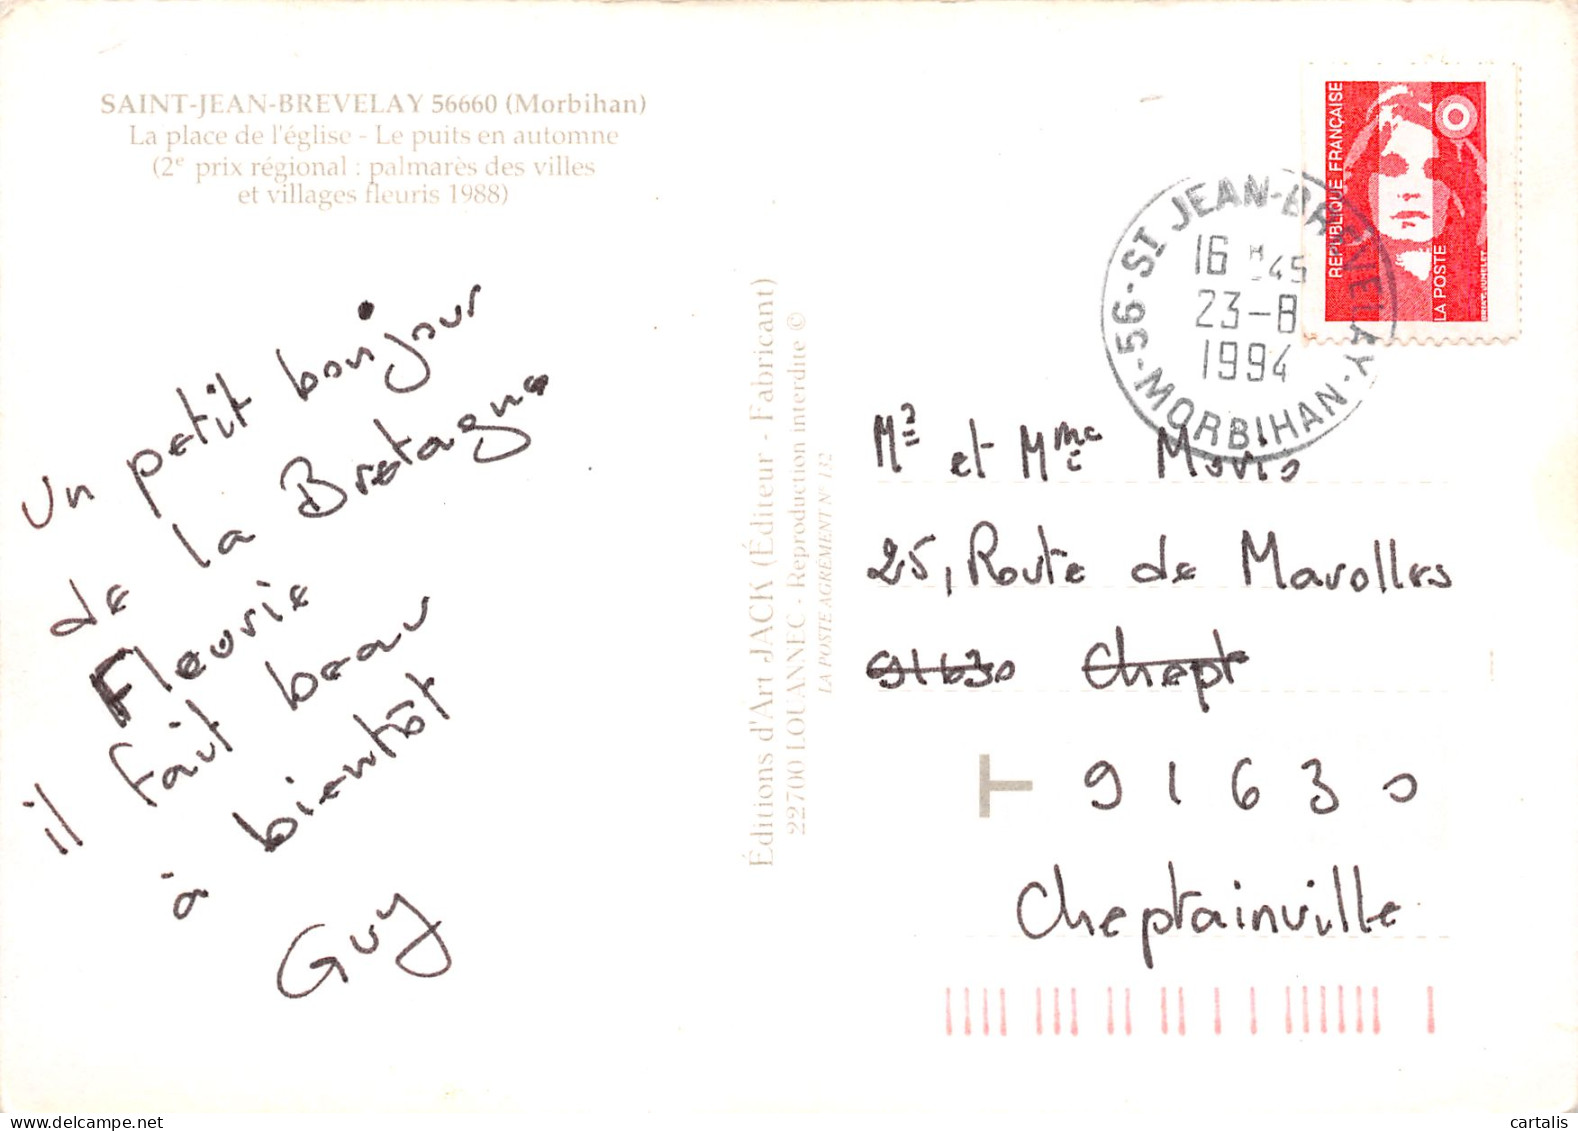 SAINT-JEAN-BREVELAY 56660 (Morbihan)
La place de l'église - Le puits en automne
(2e prix régional : palmarès des villes
et villages fleuris 1988)
Un petit bonjour
de la Bretagne
Fleurie
il fait beau
à bientôt
Guy
Éditions d'Art JACK (Éditeur - Fabricant)
22700 LOUANNEC - Reproduction interdite ©
LA POSTE AGREMENT N° 132
RÉPUBLIQUE FRANÇAISE
LA POSTE
56-ST JEAN-BREVELAY-
16 H 45
23-8
1994
-MORBIHAN-
Mr et Mme
25, Route de Marolles
91630 Chept
T 91630
Cheptainville
cartalis.com